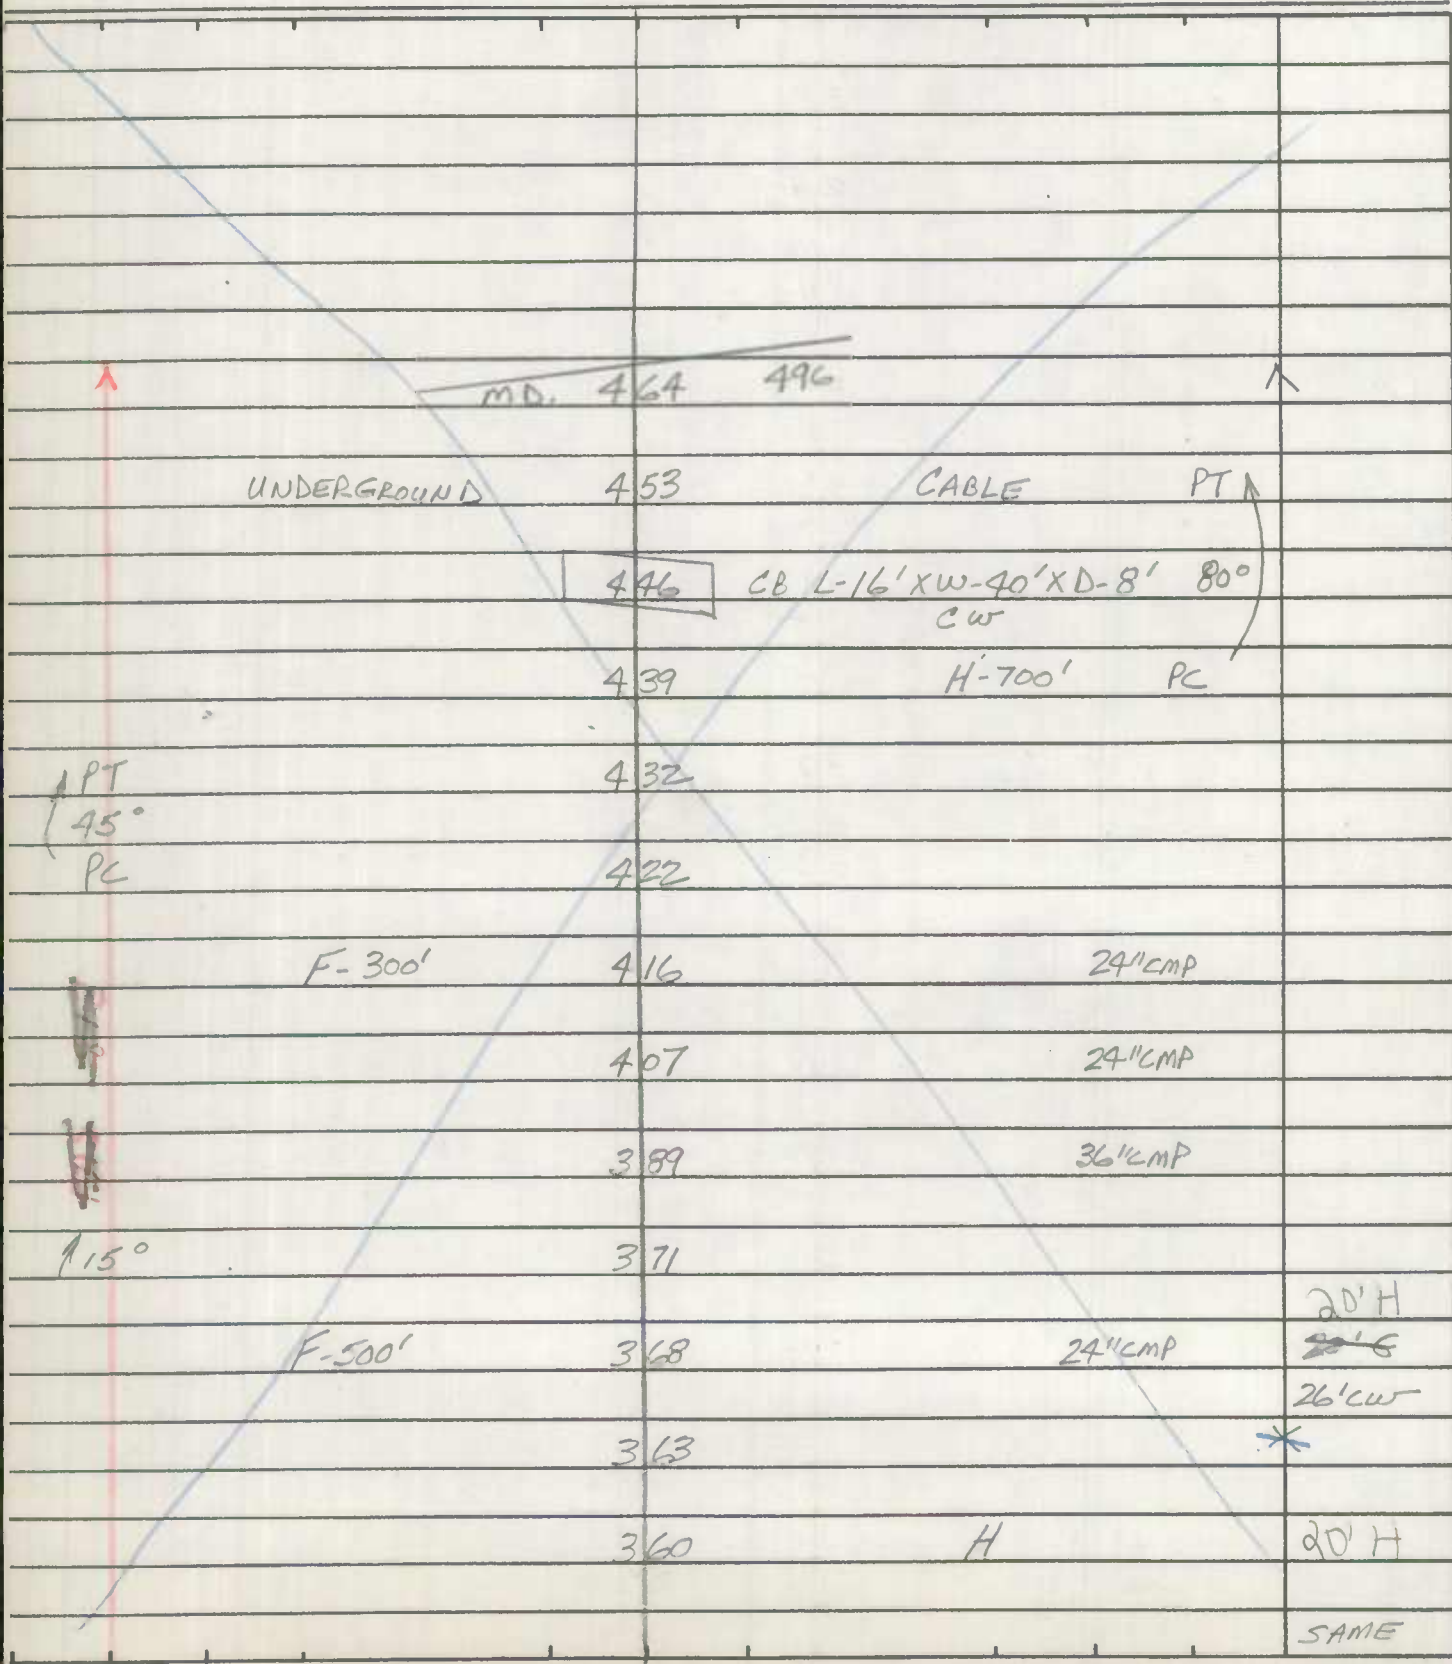 MD. 464 496
UNDERGROUND 453 CABLE PT
446 CB L-16' X W-40' X D-8' 80°
CW
439 H-700' PC
PT 432
45°
PC 422
F-300' 416 24" CMP
407 24" CMP
389 36" CMP
15° 371
20' H
F-500' 368 24" CMP
26' CW
363
360 H 20' H
SAME